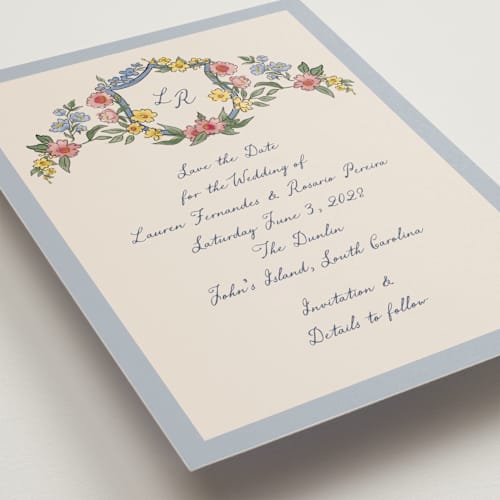 L R
Save the Date
for the Wedding of
Lauren Fernandes & Rosario Pereira
Saturday June 3, 2028
The Dunlin
John's Island, South Carolina
Invitation &
Details to follow